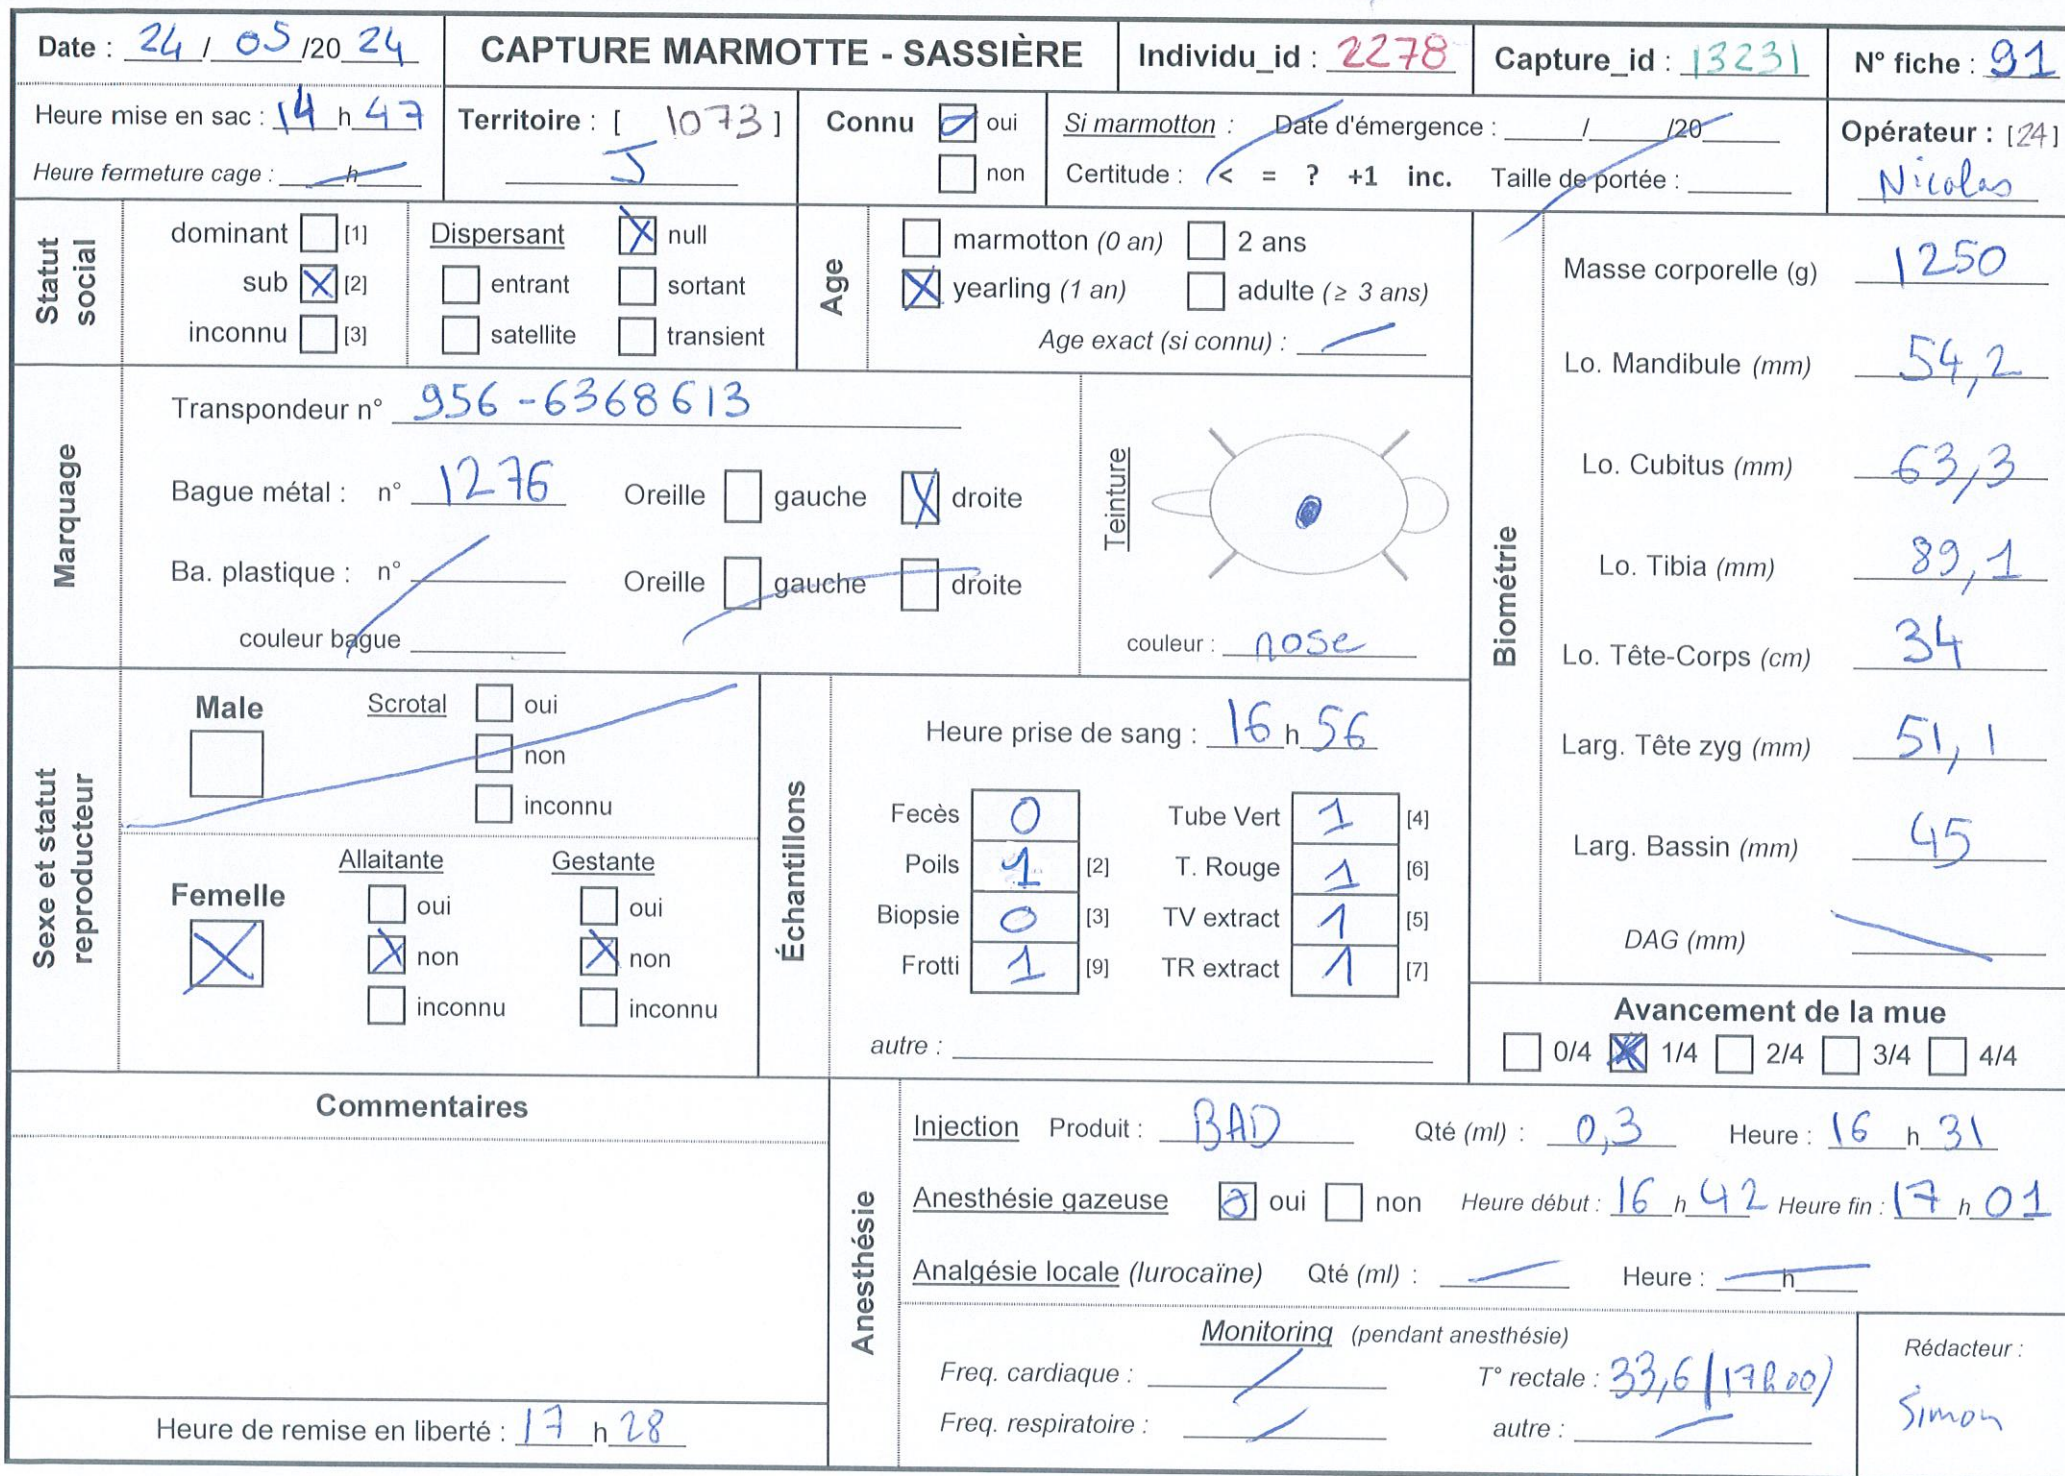 Date : 24 / 05 /20 24 CAPTURE MARMOTTE - SASSIÈRE Individu_id : 2278 Capture_id : 13231 N° fiche : 91
Heure mise en sac : 14 h 47 Territoire : [ 1073 ] Connu oui Si marmotton : Date d'émergence : / /20 Opérateur : [24]
Heure fermeture cage : h J non Certitude : < = ? +1 inc. Taille de portée : Nicolas
Statut social
dominant [1] Dispersant X null
sub X [2] entrant sortant
inconnu [3] satellite transient
Age
marmotton (0 an) 2 ans
X yearling (1 an) adulte (≥ 3 ans)
Age exact (si connu) :
Marquage
Transpondeur n° 956-6368613
Bague métal : n° 1276 Oreille gauche X droite
Ba. plastique : n° Oreille gauche droite
couleur bague
Teinture
couleur : rose
Biométrie
Masse corporelle (g) 1250
Lo. Mandibule (mm) 54,2
Lo. Cubitus (mm) 63,3
Lo. Tibia (mm) 89,1
Lo. Tête-Corps (cm) 34
Larg. Tête zyg (mm) 51,1
Larg. Bassin (mm) 45
DAG (mm)
Sexe et statut reproducteur
Male Scrotal oui
non
inconnu
Femelle X Allaitante Gestante
oui oui
X non X non
inconnu inconnu
Échantillons
Heure prise de sang : 16 h 56
Fecès 0 Tube Vert 1 [4]
Poils 1 [2] T. Rouge 1 [6]
Biopsie 0 [3] TV extract 1 [5]
Frotti 1 [9] TR extract 1 [7]
autre :
Avancement de la mue
0/4 X 1/4 2/4 3/4 4/4
Commentaires
Heure de remise en liberté : 17 h 28
Anesthésie
Injection Produit : BAD Qté (ml) : 0,3 Heure : 16 h 31
Anesthésie gazeuse oui non Heure début : 16 h 42 Heure fin : 17 h 01
Analgésie locale (lurocaïne) Qté (ml) : Heure : h
Monitoring (pendant anesthésie)
Freq. cardiaque : T° rectale : 33,6 (17h00)
Freq. respiratoire : autre :
Rédacteur :
Simon